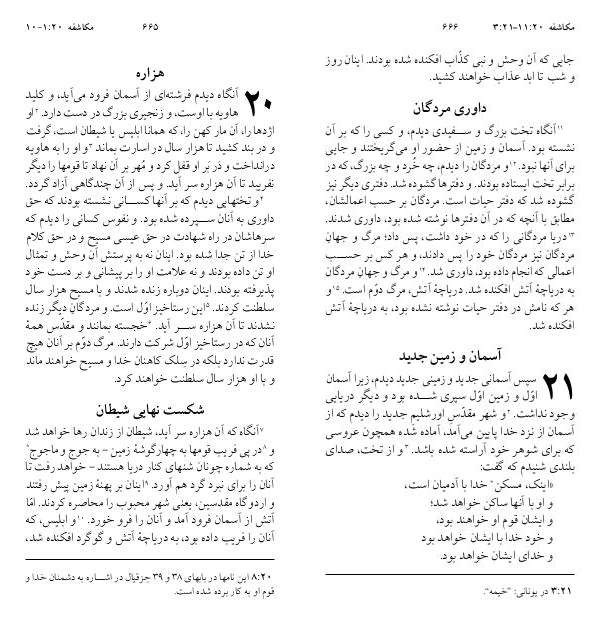 مکاشفه ۱:۲۰-۱۰
۶۶۵
هزاره
۲۰ آنگاه دیدم فرشته‌ای از آسمان فرود می‌آید، و کلید
هاویه با اوست، و زنجیری بزرگ در دست دارد. ۲او
اژدها را، آن مار کهن را، که همانا ابلیس یا شیطان است، گرفت
و در بند کشید تا هزار سال در اسارت بماند ۳و او را به هاویه
درانداخت و دَر بَر او قفل کرد و مُهر بر آن نهاد تا قومها را دیگر
نفریبد تا آن هزاره سر آید. و پس از آن چندگاهی آزاد گردد.
۴و تختهایی دیدم که بر آنها کسانی نشسته بودند که حق
داوری به آنان سپرده شده بود. و نفوس کسانی را دیدم که
سرهاشان در راه شهادت در حق عیسی مسیح و در حق کلام
خدا از تن جدا شده بود. اینان نه به پرستش آن وحش و تمثال
او تن داده بودند و نه علامت او را بر پیشانی و بر دست خود
پذیرفته بودند. اینان دوباره زنده شدند و با مسیح هزار سال
سلطنت کردند. ۵این رستاخیز اوّل است. و مردگان دیگر زنده
نشدند تا آن هزاره سر آید. ۶خجسته بمانند و مقدّس همۀ
آنان که در رستاخیز اوّل شرکت دارند. مرگ دوّم بر آنان هیچ
قدرت ندارد بلکه در سِلک کاهنان خدا و مسیح خواهند ماند
و با او هزار سال سلطنت خواهند کرد.
شکست نهایی شیطان
۷آنگاه که آن هزاره سر آید، شیطان از زندان رها خواهد شد
۸و در پی فریب قومها به چهارگوشۀ زمین - به جوج و ماجوج*
که به شماره چونان شنهای کنار دریا هستند - خواهد رفت تا
آنان را برای نبرد گرد هم آورد. ۹اینان بر پهنۀ زمین پیش رفتند
و اردوگاه مقدسین، یعنی شهر محبوب را محاصره کردند. امّا
آتش از آسمان فرود آمد و آنان را فرو خورد. ۱۰و ابلیس، که
آنان را فریب داده بود، به دریاچۀ آتش و گوگرد افکنده شد،
۸:۲۰ این نامها در بابهای ۳۸ و ۳۹ حزقیال در اشاره به دشمنان خدا و
قوم او به کار برده شده است.
مکاشفه ۱۱:۲۰-۳:۲۱
۶۶۶
جایی که آن وحش و نبی کذّاب افکنده شده بودند. اینان روز
و شب تا ابد عذاب خواهند کشید.
داوری مردگان
۱۱آنگاه تخت بزرگ و سفیدی دیدم، و کسی را که بر آن
نشسته بود. آسمان و زمین از حضور او می‌گریختند و جایی
برای آنها نبود. ۱۲و مردگان را دیدم، چه خُرد و چه بزرگ، که در
برابر تخت ایستاده بودند. و دفترها گشوده شد. دفتری دیگر نیز
گشوده شد که دفتر حیات است. مردگان بر حسب اعمالشان،
مطابق با آنچه که در آن دفترها نوشته شده بود، داوری شدند.
۱۳دریا مردگانی را که در خود داشت، پس داد؛ مرگ و جهان
مردگان نیز مردگان خود را پس دادند، و هر کس بر حسب
اعمالی که انجام داده بود، داوری شد. ۱۴و مرگ و جهانِ مردگان
به دریاچۀ آتش افکنده شد. دریاچۀ آتش، مرگ دوّم است. ۱۵و
هر که نامش در دفتر حیات نوشته نشده بود، به دریاچۀ آتش
افکنده شد.
آسمان و زمین جدید
۲۱ سپس آسمانی جدید و زمینی جدید دیدم، زیرا آسمان
اوّل و زمین اوّل سپری شده بود و دیگر دریایی
وجود نداشت. ۲و شهر مقدّس اورشلیم جدید را دیدم که از
آسمان از نزد خدا پایین می‌آمد، آماده شده همچون عروسی
که برای شوهر خود آراسته شده باشد. ۳و از تخت، صدای
بلندی شنیدم که گفت:
«اینک، مسکن* خدا با آدمیان است،
و او با آنها ساکن خواهد شد؛
و ایشان قوم او خواهند بود،
و خود خدا با ایشان خواهد بود
و خدای ایشان خواهد بود.
۳:۲۱ در یونانی: ”خیمه“.